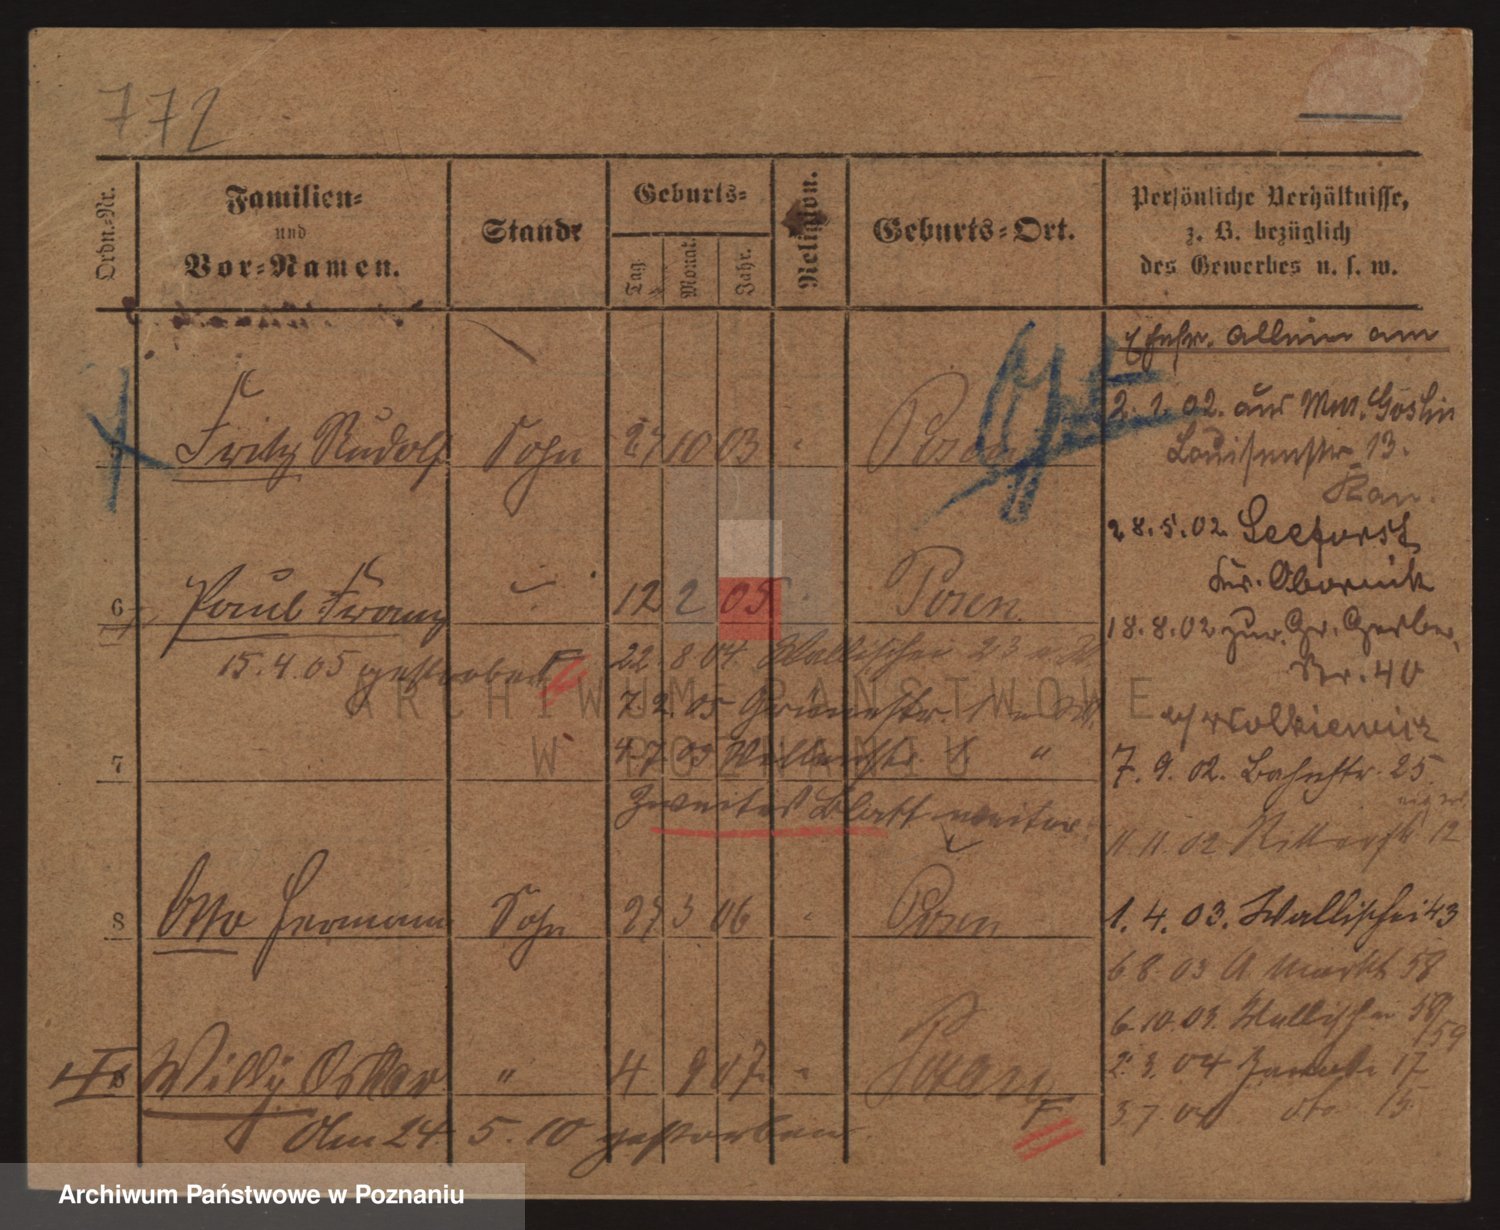 772
Ordn.-Nr.
Familien-
und
Vor-Namen.
Stand.
Geburts-
Tag.
Monat.
Jahr.
Religion.
Geburts-Ort.
Persönliche Verhältnisse,
z. B. bezüglich
des Gewerbes u. s. w.
Fritz Rudolf Sohn 27 10 03 " Posen
6 Paul Franz " 12 2 05 " Posen
15.4.05 gestorben F
22. 8 04. Wallischei 23
7.2.05 Grünestr. 1
4.7.05 1 "
7
Zweites Blatt weiter
8 Otto Hermann Sohn 27 3 06 " Posen
Willy Oskar " 4 9 07 " Posen
Am 24. 5. 10 gestorben.
F
Ehefr. allein am
2.1.02. aus
Louisenstr. 13.
28.5.02 Seeforst
Kr. Obornik
18.8.02 zur. Gr. Gerber
Str. 40
7. 9. 02. Bahnstr. 25
11.11.02 Ritterstr 12
1. 4. 03. Wallischei 43
6 8. 03 A Markt 58
6.10.03. Wallischei 58/
59
2. 3. 04 17
3 7. 04 dto 15
ARCHIWUM PAŃSTWOWE
W POZNANIU
Archiwum Państwowe w Poznaniu